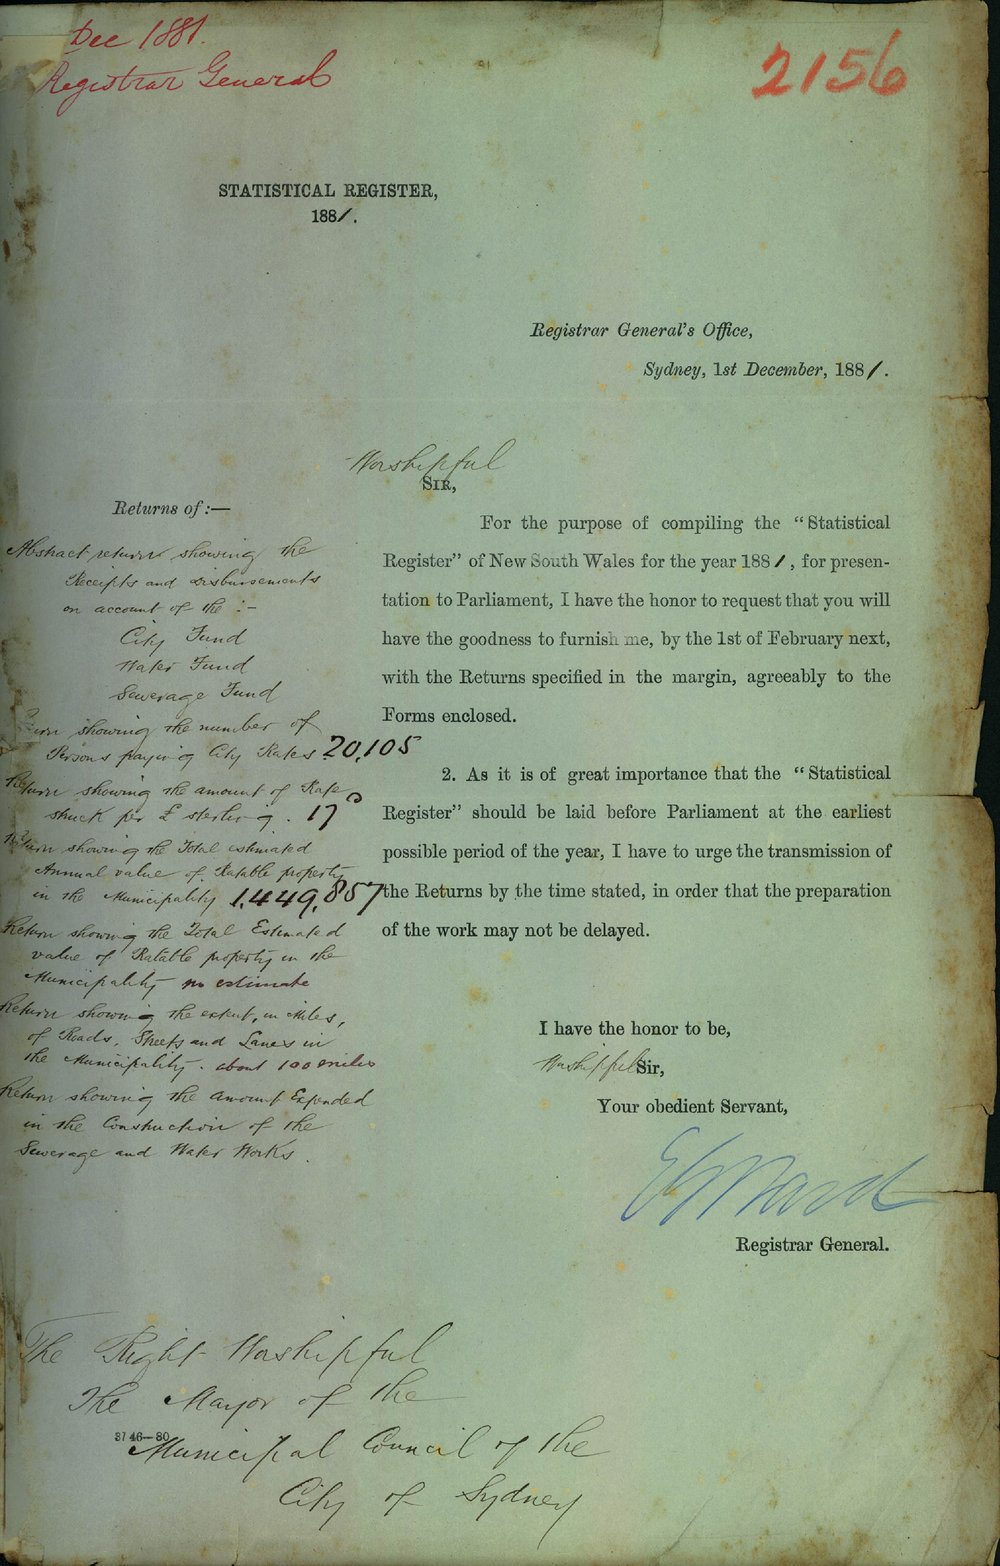 Dec 1881.
Registrar General
2156
STATISTICAL REGISTER,
1881.
Registrar General's Office,
Sydney, 1st December, 1881.
Worshipful
SIR,
For the purpose of compiling the "Statistical
Register" of New South Wales for the year 1881, for presen-
tation to Parliament, I have the honor to request that you will
have the goodness to furnish me, by the 1st of February next,
with the Returns specified in the margin, agreeably to the
Forms enclosed.
2. As it is of great importance that the "Statistical
Register" should be laid before Parliament at the earliest
possible period of the year, I have to urge the transmission of
the Returns by the time stated, in order that the preparation
of the work may not be delayed.
I have the honor to be,
Worshipful Sir,
Your obedient Servant,
Registrar General.
Returns of:—
Abstract return showing the
Receipts and Disbursements
on account of the :-
City Fund
Water Fund
Sewerage Fund
Return showing the number of
Persons paying City Rates 20,105
Return showing the amount of Rate
struck per £ sterling . 17D
Return showing the Total estimated
Annual value of Ratable property
in the Municipality 1,449,857
Return showing the Total Estimated
value of Ratable property in the
Municipality no estimate
Return showing the extent, in Miles,
of Roads, Streets and Lanes in
the Municipality. about 100 miles
Return showing the amount Expended
in the Construction of the
Sewerage and Water Works.
The Right Worshipful
The Mayor of the
3746—80
Municipal Council of the
City of Sydney